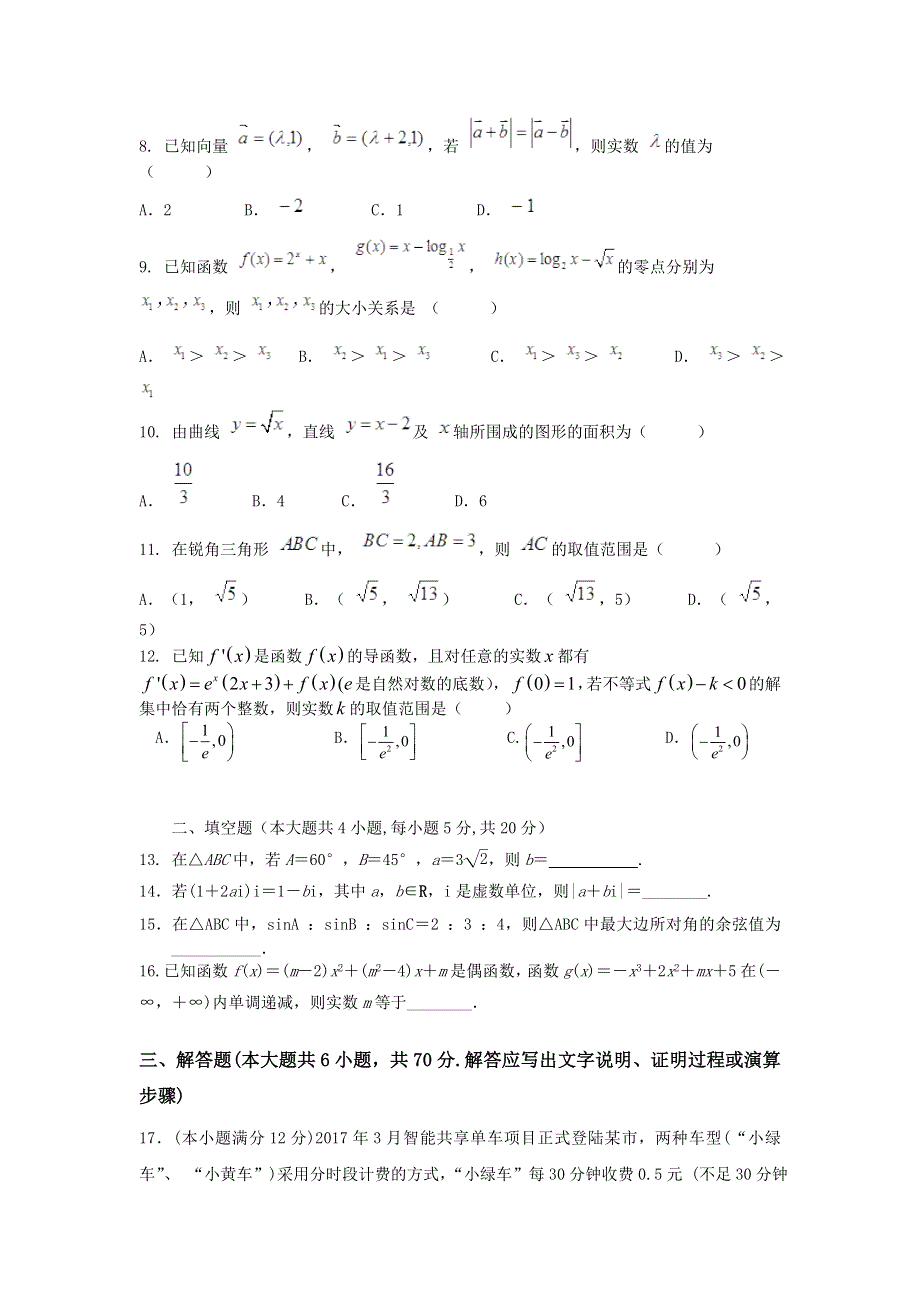 8. 已知向量 a⃗=(λ,1), b⃗=(λ+2,1),若 |a⃗+b⃗|=|a⃗−b⃗|,则实数 λ的值为
(    )
A.2 B. −2 C.1 D. −1
9. 已知函数 f(x)=2ˣ+x, g(x)=x−log_{1/2} x, h(x)=log₂x−√x的零点分别为
x₁,x₂,x₃,则 x₁,x₂,x₃的大小关系是 (    )
A. x₁> x₂> x₃ B. x₂> x₁> x₃ C. x₁> x₃> x₂ D. x₃> x₂>
x₁
10. 由曲线 y=√x,直线 y=x−2及 x轴所围成的图形的面积为(    )
A. 10/3 B.4 C. 16/3 D.6
11. 在锐角三角形 ABC中, BC=2,AB=3,则 AC的取值范围是(    )
A.(1, √5) B.( √5, √13) C.( √13,5) D.( √5,
5)
12. 已知f'(x)是函数f(x)的导函数,且对任意的实数x都有
f'(x)=eˣ(2x+3)+f(x)(e是自然对数的底数),f(0)=1,若不等式f(x)−k<0的解
集中恰有两个整数,则实数k的取值范围是(    )
A.[−1/e,0) B.[−1/e²,0] C.(−1/e²,0] D.(−1/e²,0)
二、填空题(本大题共4小题,每小题5分,共20分)
13. 在△ABC中,若A=60°,B=45°,a=3√2,则b=__________.
14.若(1+2ai)i=1-bi,其中a,b∈R,i是虚数单位,则|a+bi|=________.
15.在△ABC中,sinA :sinB :sinC=2 :3 :4,则△ABC中最大边所对角的余弦值为
___________.
16.已知函数f(x)=(m-2)x²+(m²-4)x+m是偶函数,函数g(x)=-x³+2x²+mx+5在(-
∞,+∞)内单调递减,则实数m等于________.
三、解答题(本大题共6小题,共70分.解答应写出文字说明、证明过程或演算
步骤)
17.(本小题满分12分)2017年3月智能共享单车项目正式登陆某市,两种车型(“小绿
车”、 “小黄车”)采用分时段计费的方式,“小绿车”每30分钟收费0.5元 (不足30分钟